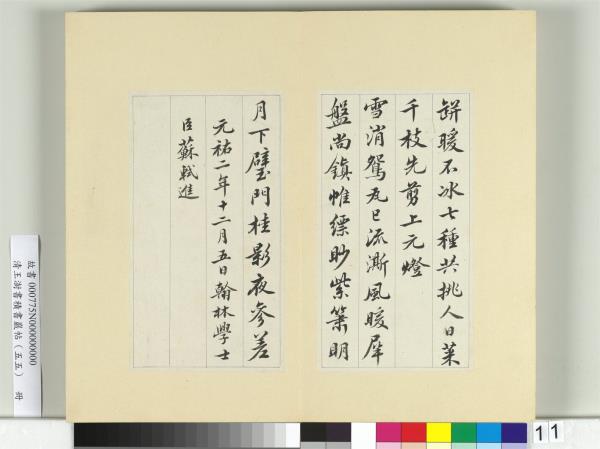 缾暖不冰七種共挑人日菜
千枝先剪上元燈
雪消鴛瓦已流澌風暖犀
盤尚鎮帷縹眇紫簫明
月下璧門桂影夜參差
元祐二年十二月五日翰林學士
臣蘇軾進
故書000775N000000000
清王澍書積書巖帖(五五) 冊
11